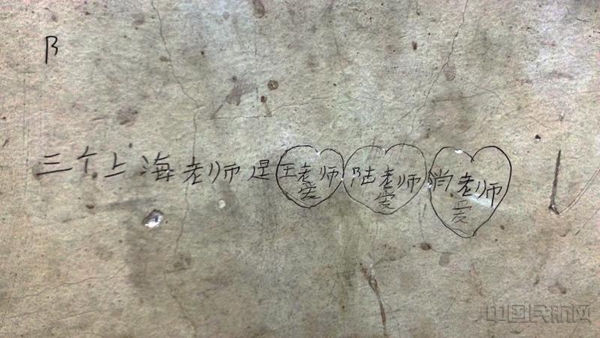 三个上海老师是王老师 陆老师 肖老师
爱 爱 爱
中国民航网